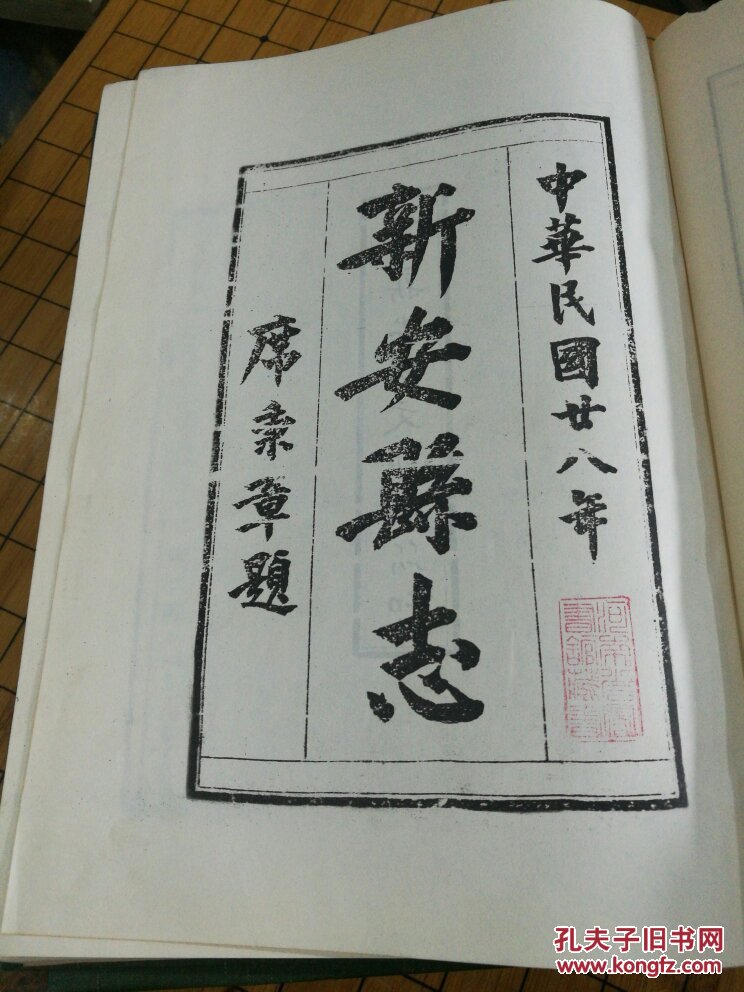 中華民國廿八年
新安縣志
席素章題
孔夫子旧书网
www.kongfz.com